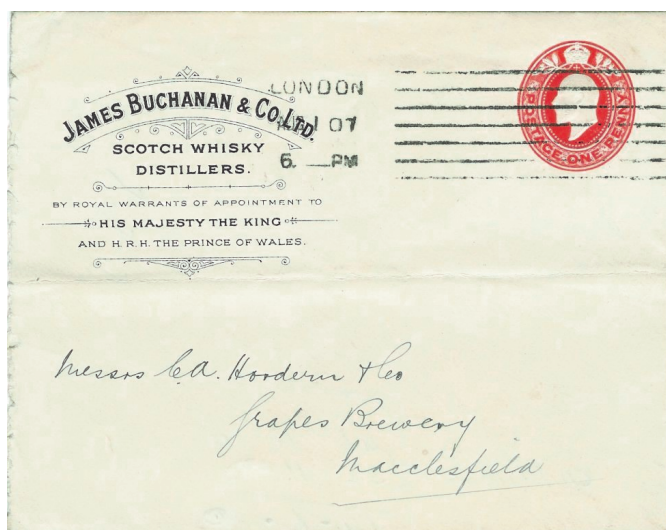 JAMES BUCHANAN & CO. LTD.
SCOTCH WHISKY
DISTILLERS.
BY ROYAL WARRANTS OF APPOINTMENT TO
HIS MAJESTY THE KING
AND H.R.H. THE PRINCE OF WALES.
LONDON
1 07
6. PM
POSTAGE ONE PENNY
Messrs C.A. Hordern & Co
Grapes Brewery
Macclesfield